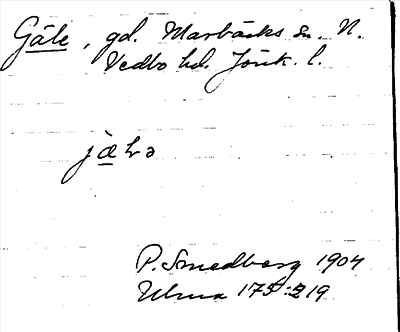 Gäle, gd. Marbäcks sn. N.
Vedbo hd. Jönk. l.
P. Smedberg 1904
Ulma 175:219